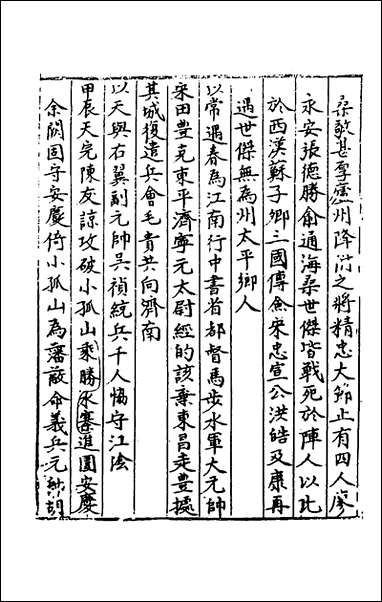 桑敬甚眾廬州降附之將精忠大節止有四人廖
永安張德勝俞通海桑世傑皆戰死於陣人以比
於西漢蘇子卿三國傅僉宋忠宣公洪皓及康再
遇世傑無為州太平鄉人
以常遇春為江南行中書省都督馬步水軍大元帥
宋田豐克東平濟寧元太尉經的該棄東昌走豐據
其城復遣兵會毛貴共向濟南
以天與右翼副元帥吳禎統兵千人協守江陰
甲辰天完陳友諒攻破小孤山乘勝水寨進圍安慶
余闕固守安慶倚小孤山為藩蔽命義兵元帥胡